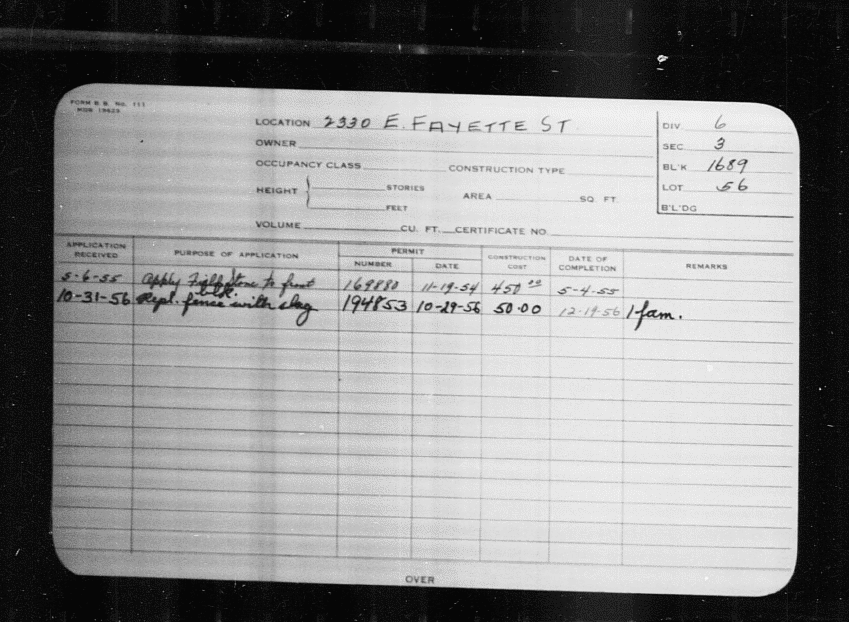 FORM B. B. No. 111
LOCATION 2330 E. FAYETTE ST
DIV. 6
OWNER
SEC 3
OCCUPANCY CLASS CONSTRUCTION TYPE
BL'K 1689
HEIGHT STORIES AREA SQ. FT.
LOT 56
FEET
B'L'DG
VOLUME CU. FT. CERTIFICATE NO.
APPLICATION RECEIVED PURPOSE OF APPLICATION PERMIT NUMBER DATE CONSTRUCTION COST DATE OF COMPLETION REMARKS
5-6-55 Apply to front 169880 11-19-54 450 5-4-55
10-31-56 Repl. fence with slag 194853 10-29-56 50.00 12-19-56 1 fam.
OVER